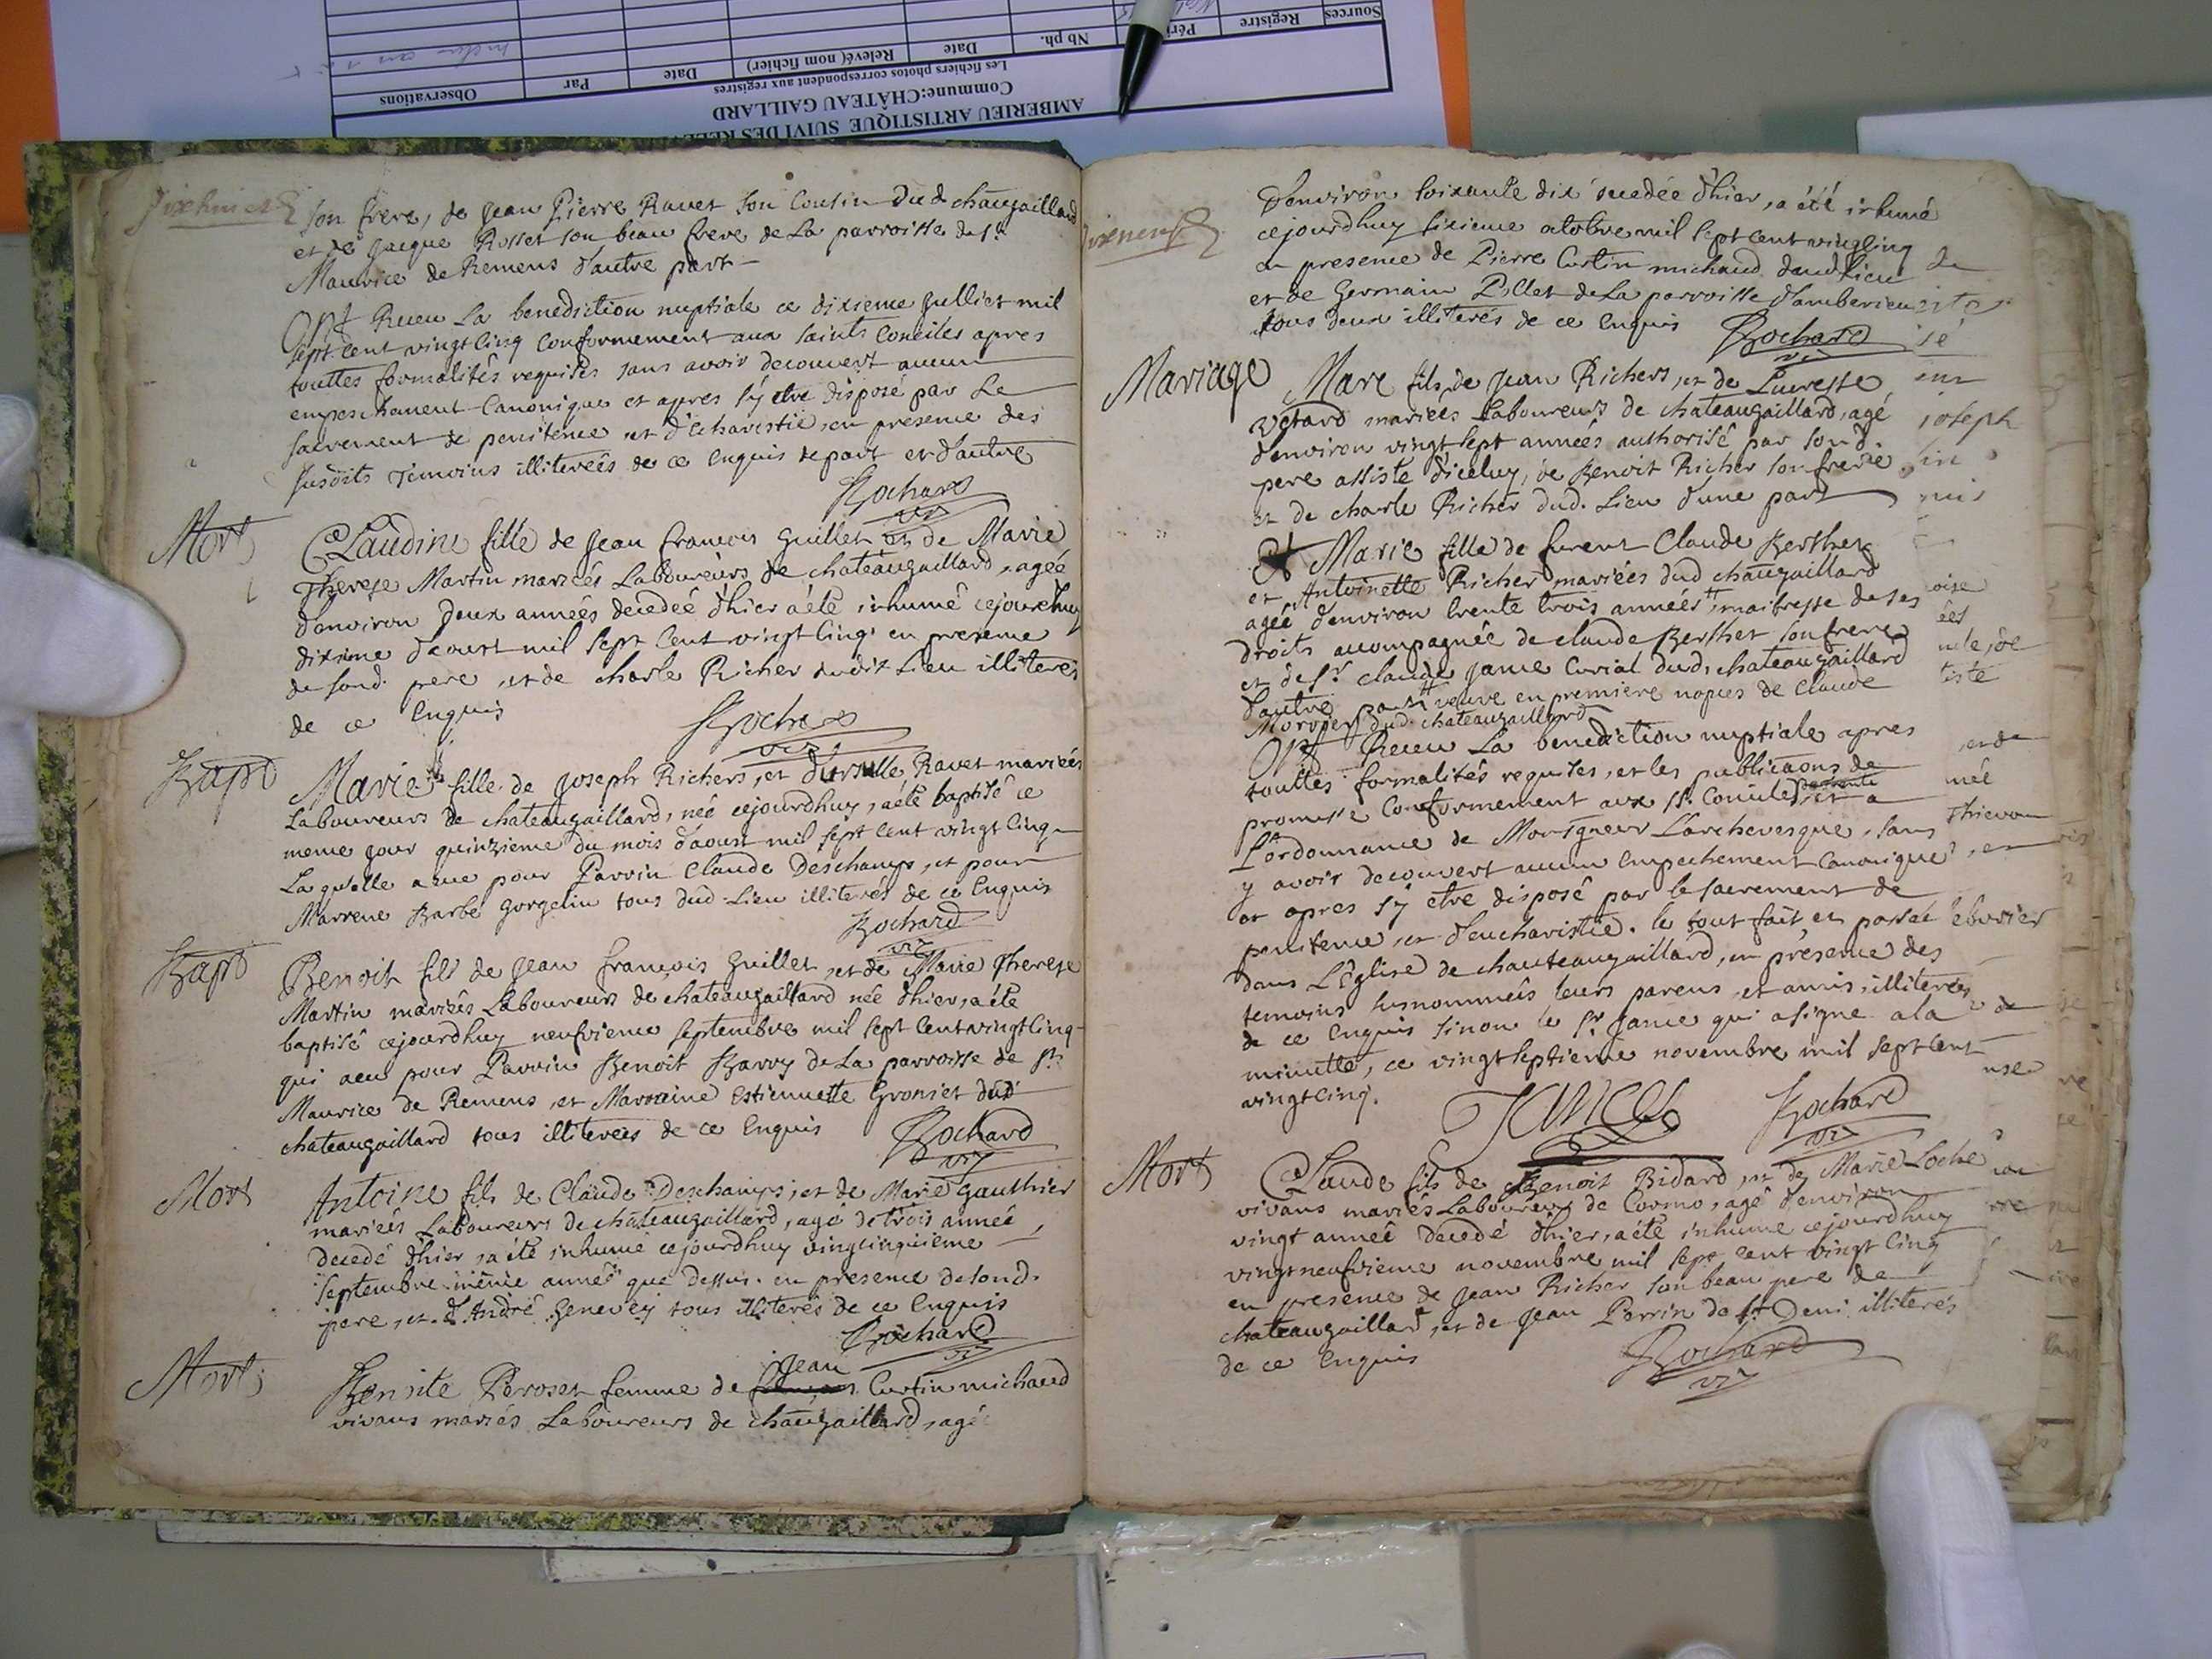 AMBERIEU ARTISTIQUE SUIVI DES
Commune:CHÂTEAU GAILLARD
Les fichiers photos correspondent aux registres
Sources Registre Nb ph. Date Relevé( nom fichier) Date Par Observations
son frere, de Jean Pierre Ravet son cousin dud chaugaillard
et de Jacque Rosset son beau frere de La parroisse de st
Maurice de Remens d'autre part
Ont Receu La benediction nuptiale ce dixieme Julliet mil
sept cent vingt cinq conformement aux saints conciles apres
touttes formalités requises sans avoir decouvert aucun
empeschement canonique et apres s'y etre disposé par Le
sacrement de penitence et d'Echaristie, en presence des
susdits Temoins illiterés de ce Enquis de part et d'autre
Rochard
Mort
CLaudine fille de Jean francois Guillet et de Marie
Therese Martin, mariés Laboureurs de chateaugaillard, agée
d'environ deux années decedée d'hier a été inhumé cejourdhuy
dixieme d'aoust mil sept cent vingt cinq en presence
de sond. pere, et de charle Richer dudit Lieu illiterés
de ce Enquis
Rochard
Bapt
Marie fille de Joseph Richers, et d'ursulle Ravet mariés
Laboureurs de chateaugaillard, née cejourdhuy, a été baptisé ce
meme jour quinzieme du mois d'aoust mil sept cent vingt cinq
La qu'elle a eue pour Parrin Claude Deschamps, et pour
Marrene Barbe Gorgelin tous dud. Lieu illiterés de ce Enquis
Rochard
Bapt
Benoit fils de Jean françois Guillet, et de Marie Therese
Martin mariés Laboureurs de chateaugaillard née d'hier, a été
baptisé cejourdhuy neufvieme septembre mil sept cent vingt cinq
qui a eu pour Parrin Benoit Barry de La parroisse de st
Maurice de Remens, et Marraine Estiennette Groniet dud
chateaugaillard tous illiterés de ce Enquis
Rochard
Mort
Antoine fils de Claude Deschamps, et de Marie Gauthier
mariés Laboureurs de chateaugaillard, agé de trois année,
decedé d'hier, a été inhumé cejourdhuy vingcinquieme
septembre même année que dessus. en presence de sond.
pere, et d'André Genevey tous illiterés de ce Enquis
Rochard
Mort
Jean
Benoite Peroset femme de Curtin michaud
vivans mariés Laboureurs de chaugaillard, agée
d'environ soixante dix decedée d'hier, a été inhumé
cejourdhuy sixieme octobre mil sept cent vingcinq
en presence de Pierre Curtin michaud dud Lieu
et de Germain Pillet de La parroisse d'amberieu
tous deux illiterés de ce Enquis
Rochard
Mariage
Marc fils de Jean Richers, et de Lucresse
mariés Laboureurs de chateaugaillard, agé
d'environ vingt sept années authorisé par sond.
pere assisté d'iceluy, de Benoit Richer son frere
et de charle Richer dud. Lieu d'une part
Et Marie fille de furent Claude Berthet
et Antoinette Richer mariées dud chaugaillard
agée d'environ trente trois années, maitresse de ses
droits accompagnée de claude Berthet son frere
et de sr. claude Jance Curial dud. chateaugaillard
d'autre part veuve en premiere nopces de Claude
dud. chateaugaillard
Ont Receu La benediction nuptiale apres
touttes formalités requises, et les publicaons de
promesse conformement aux st. conciles et a
L'ordonnance de Monsigneur L'archevesque, sans
y avoir decouvert aucun Empechement canonique
et apres s'y etre disposé par le sacrement de
penitence, et d'eucharistie. le tout fait et passé
dans L'Eglise de chauteaugaillard, en présence des
temoins susnommés leurs parens et amis, illiterés
de ce Enquis sinon le sr Jance qui a signe a la
minutte, ce vingt septieme novembre mil sept cent
vingt cinq.
Jance
Rochard
Mort
CLaude fils de Benoit Bidard, et de Marie Loche
vivans mariés Laboureurs de Cormo, agé d'environ
vingt année decedé d'hier, a été inhume cejourdhuy
vingt neufvieme novembre mil sept cent vingt cinq
en presence de Jean Richer son beau pere de
chateaugaillard, et de Jean Perrin de st Deni illiterés
de ce Enquis
Rochard